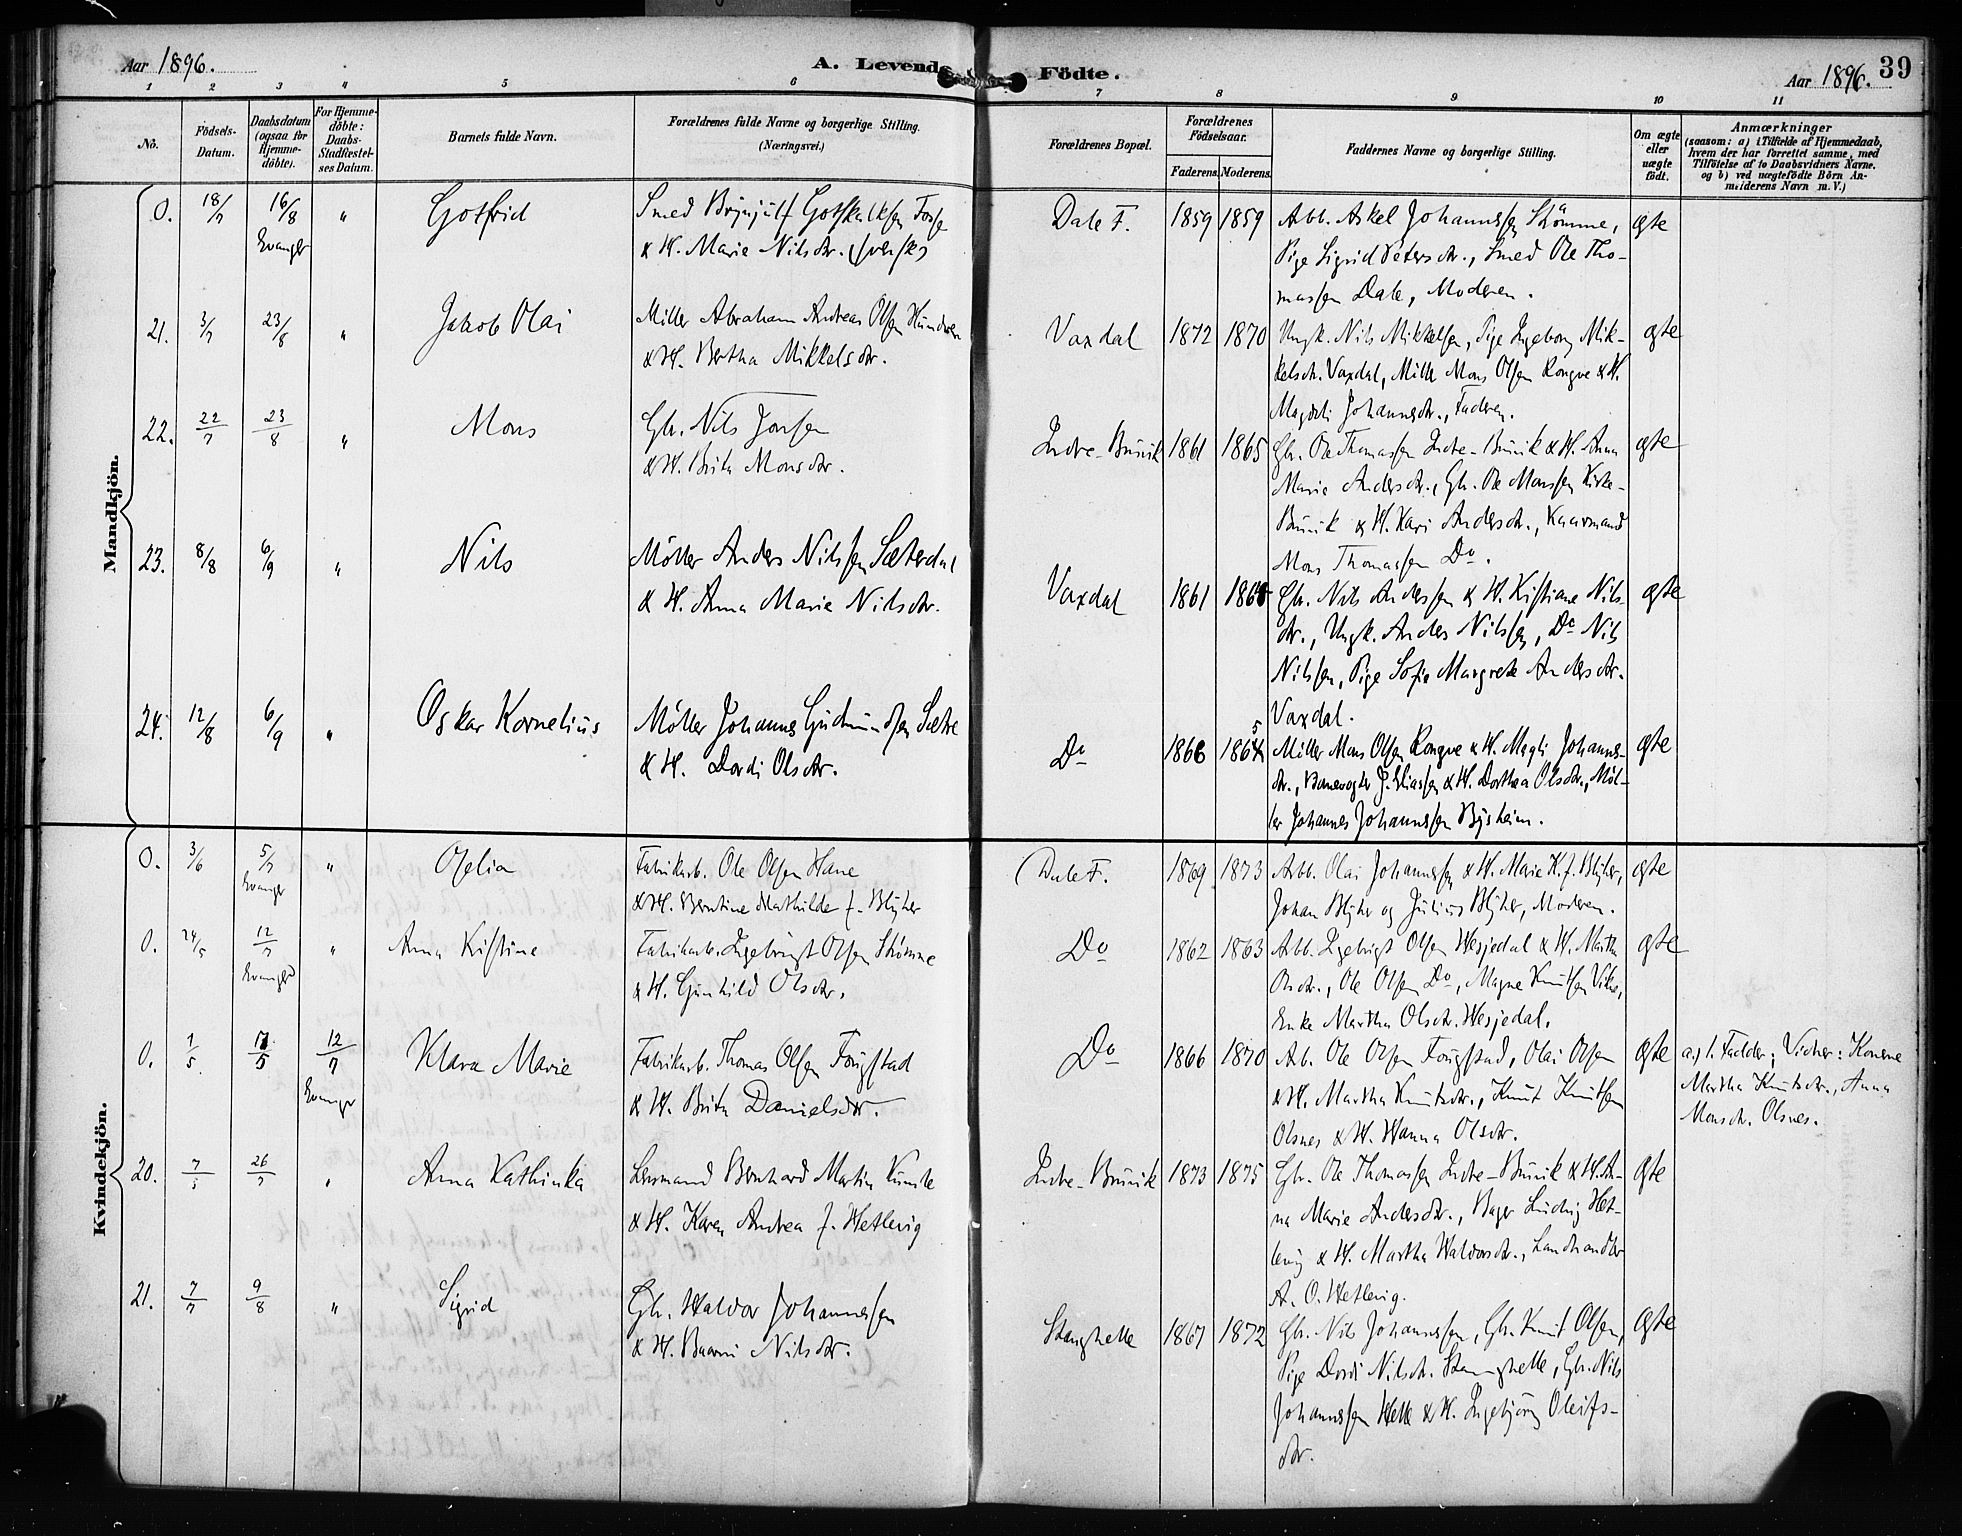 Aar 1896.
A. Levende Födte.
Aar 1896. 39
1 2 3 4 5 6 7 8 9 10 11
No.
Födsels-Datum.
Daabsdatum (ogsaa for Hjemmedöbte).
For Hjemmedöbte: Daabs-Stadfæstelses Datum.
Barnets fulde Navn.
Forældrenes fulde Navne og borgerlige Stilling.
(Næringsvei.)
Forældrenes Bopæl.
Forældrenes Födselsaar.
Faderens. Moderens.
Faddernes Navne og borgerlige Stilling.
Om ægte eller uægte födt.
Anmærkninger
(saasom: a) i Tilfælde af Hjemmedaab,
hvem der har forrettet samme, med
Tilföielse af to Daabsvidners Navne.
og b) ved uægtefödte Börn An-
melderens Navn m. V.)
Mandkjön.
0. 18/7 16/8 Evanger " Gotfrid
Smed Brynjulf Gotskalksen Fosse
& H. Marie Nilsdtr. (svensk)
Dale F. 1859 1859
Arb. Askel Johannessen Stømme,
Pige Sigrid Petersdtr., Smed Ole Tho-
massen Dale, Moderen.
ægte
21. 3/7 23/8 " Jakob Olai
Møller Abraham Andreas Olsen
& H. Bertha Mikkelsdtr.
Vaxdal 1872 1870
Ungk. Nils Mikkelsen, Pige Ingeborg Mik-
kelsdtr. Vaxdal, Møller Mons Olsen Rongve & H.
Magdeli Johannesdtr., Faderen.
ægte
22. 22/7 23/8 " Mons
Gbr. Nils Jonsen
& H. Brita Monsdtr.
Indre-Bruvik 1861 1865
Gbr. Ole Thomassen Indre-Bruvik & H. Anna
Marie Andersdtr., Gbr. Ole Monssen Kirke-
Bruvik & H. Kari Andersdtr., Kaarmand
Mons Thomassen Do.
ægte
23. 8/8 6/9 " Nils
Møller Anders Nilssen Sæterdal
& H. Anna Marie Nilsdtr.
Vaxdal 1861
Gbr. Nils Anderssen & H. Kistiane Nils-
dtr., Ungk. Anders Nilssen, Do Nils
Nilssen, Pige Sofie Margrete Andersdtr.
Vaxdal.
ægte
24. 12/8 6/9 " Oskar Kornelius
Møller Johannes Gudmundsen Sætre
& H. Dordi Olsdtr.
Do 1866 1865
Møller Mons Olsen Rongve & H. Magli Johannes-
dtr., Banevogter J. Eliassen & H. Dorthea Olsdtr., Møl-
ler Johannes Johannessen Bysheim.
ægte
Kvindekjön.
0. 3/6 5/7 Evanger " Ofelia
Fabrikarb. Ole Olsen Hane
& H. Berntine Mathilde f. Blyher
Dale F. 1869 1873
Arb. Olai Johannessen & H. Marie K. f. Blyher,
Johan Blyher og Julius Blyher, Moderen.
ægte
0. 24/5 12/7 Evanger " Anna Kistine
Fabrikarb. Ingebrigt Olsen Stømme
& H. Gunhild Olsdtr.
Do 1862 1863
Arb. Ingebrigt Olsen Hesjedal & H. Martha
Olsdtr., Ole Olsen Do, Magne Knutsen Vike,
Enke Martha Olsdtr. Hesjedal.
ægte
0. 1/5 12/7 Evanger Klara Marie
Fabrikarb. Thomas Olsen Fougstad
& H. Brita Danielsdtr.
Do 1866 1870
Arb. Ole Olsen Fougstad, Olai Olsen
& H. Martha Knutsdtr., Knut Knutsen
Olsnes & H. Hanna Olsdtr.
ægte
a.) 1. Fadder; Vidner: Konerne
Martha Knutsdtr., Anna
Monsdtr. Olsnes.
20. 7/5 26/7 " Anna Kathinka
Lensmand Bernhard Martin
& H. Karen Andrea f. Hetlevig
Indre-Bruvik 1873 1875
Gbr. Ole Thomassen Indre-Bruvik & H. An-
na Marie Andersdtr., Bager Ludvig Het-
levig & H. Martha Haldorsdtr., Landhandler
A. O. Hetlevig.
ægte
21. 7/7 9/8 " Sigrid
Gbr. Haldor Johannessen
& H. Nilsdtr.
Stanghelle 1867 1872
Gbr. Nils Johannessen, Gbr. Knut Olsen,
Pige Dordi Nilsdtr. Stanghelle, Gbr. Nils
Johannessen Helle & H. Ingebjörg Oleifs-
dtr.
ægte